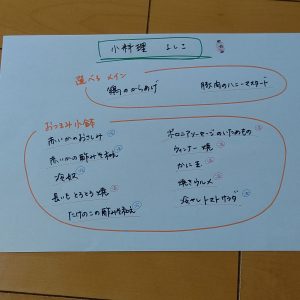 小料理 よしこ
選べる メイン
鶏のからあげ
豚肉のハニーマスタード
おつまみ小鉢
赤いかのおさしみ
赤いかの酢みそ和え
冷奴
長いもとろとろ焼
たけのこの酢みそ和え
ボロニアソーセージのいためもの
ウィンナー焼
かに玉
焼きウルメ
冷やしトマトサラダ